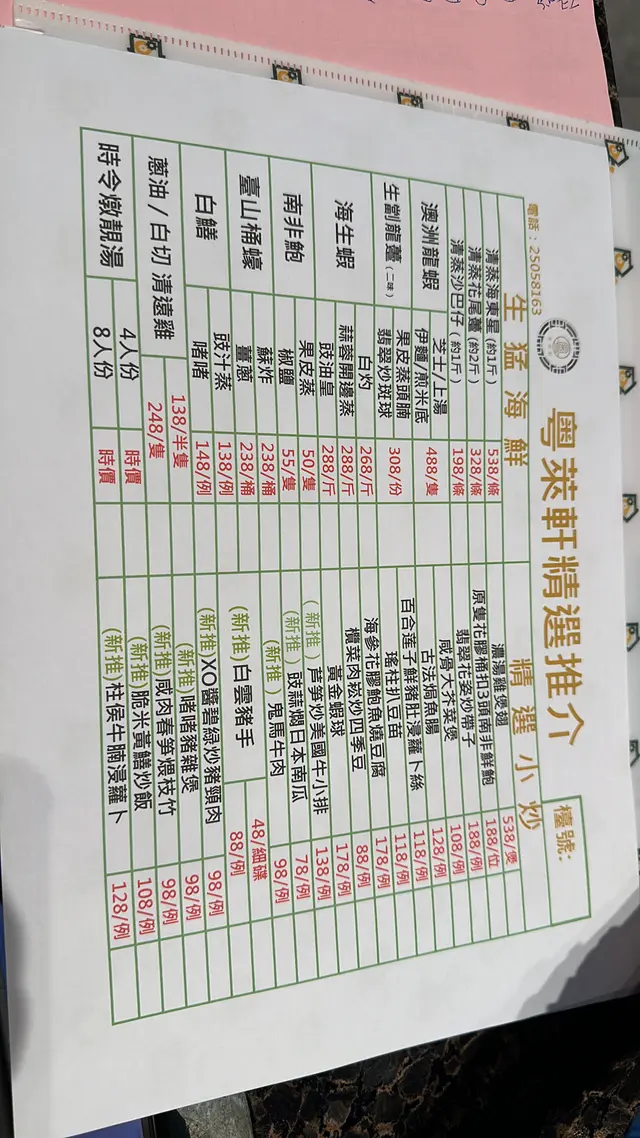 粵萊軒精選推介
檯號:
電話：25058163
生猛海鮮
清蒸海東星 (約1斤) 538/條
清蒸花尾躉 (約2斤) 328/條
清蒸沙巴仔 (約1斤) 198/條
澳洲龍蝦 芝士/上湯 伊麵/煎米底 488/隻
生劏龍躉 (二味) 果皮蒸頭腩 翡翠炒斑球 308/份
海生蝦 白灼 268/斤
蒜蓉開邊蒸 288/斤
豉油皇 288/斤
南非鮑 果皮蒸 50/隻
椒鹽 55/隻
臺山桶蠔 蘇炸 238/桶
薑蔥 238/桶
白鱔 豉汁蒸 138/例
啫啫 148/例
蔥油 / 白切 清遠雞 138/半隻
248/隻
時令燉靚湯 4人份 時價
8人份 時價
精選小炒
濃湯雞煲翅 538/煲
原隻花膠桶扣3頭南非鮮鮑 188/位
翡翠花姿炒帶子 188/例
咸骨大芥菜煲 108/例
古法焗魚腸 128/例
百合莲子鮮豬肚浸蘿卜絲 118/例
瑤柱扒豆苗 118/例
海參花膠鮑魚燒豆腐 178/例
欖菜肉崧炒四季豆 88/例
黃金蝦球 178/例
(新推) 芦笋炒美國牛小排 138/例
(新推) 豉蒜燜日本南瓜 78/例
(新推) 鬼馬牛肉 98/例
(新推)白雲豬手 48/細碟
88/例
(新推)XO醬碧綠炒豬頸肉 98/例
(新推)啫啫豬雜煲 98/例
(新推)咸肉春笋煨枝竹 98/例
(新推)脆米黃鱔炒飯 108/例
(新推)柱侯牛腩浸蘿卜 128/例